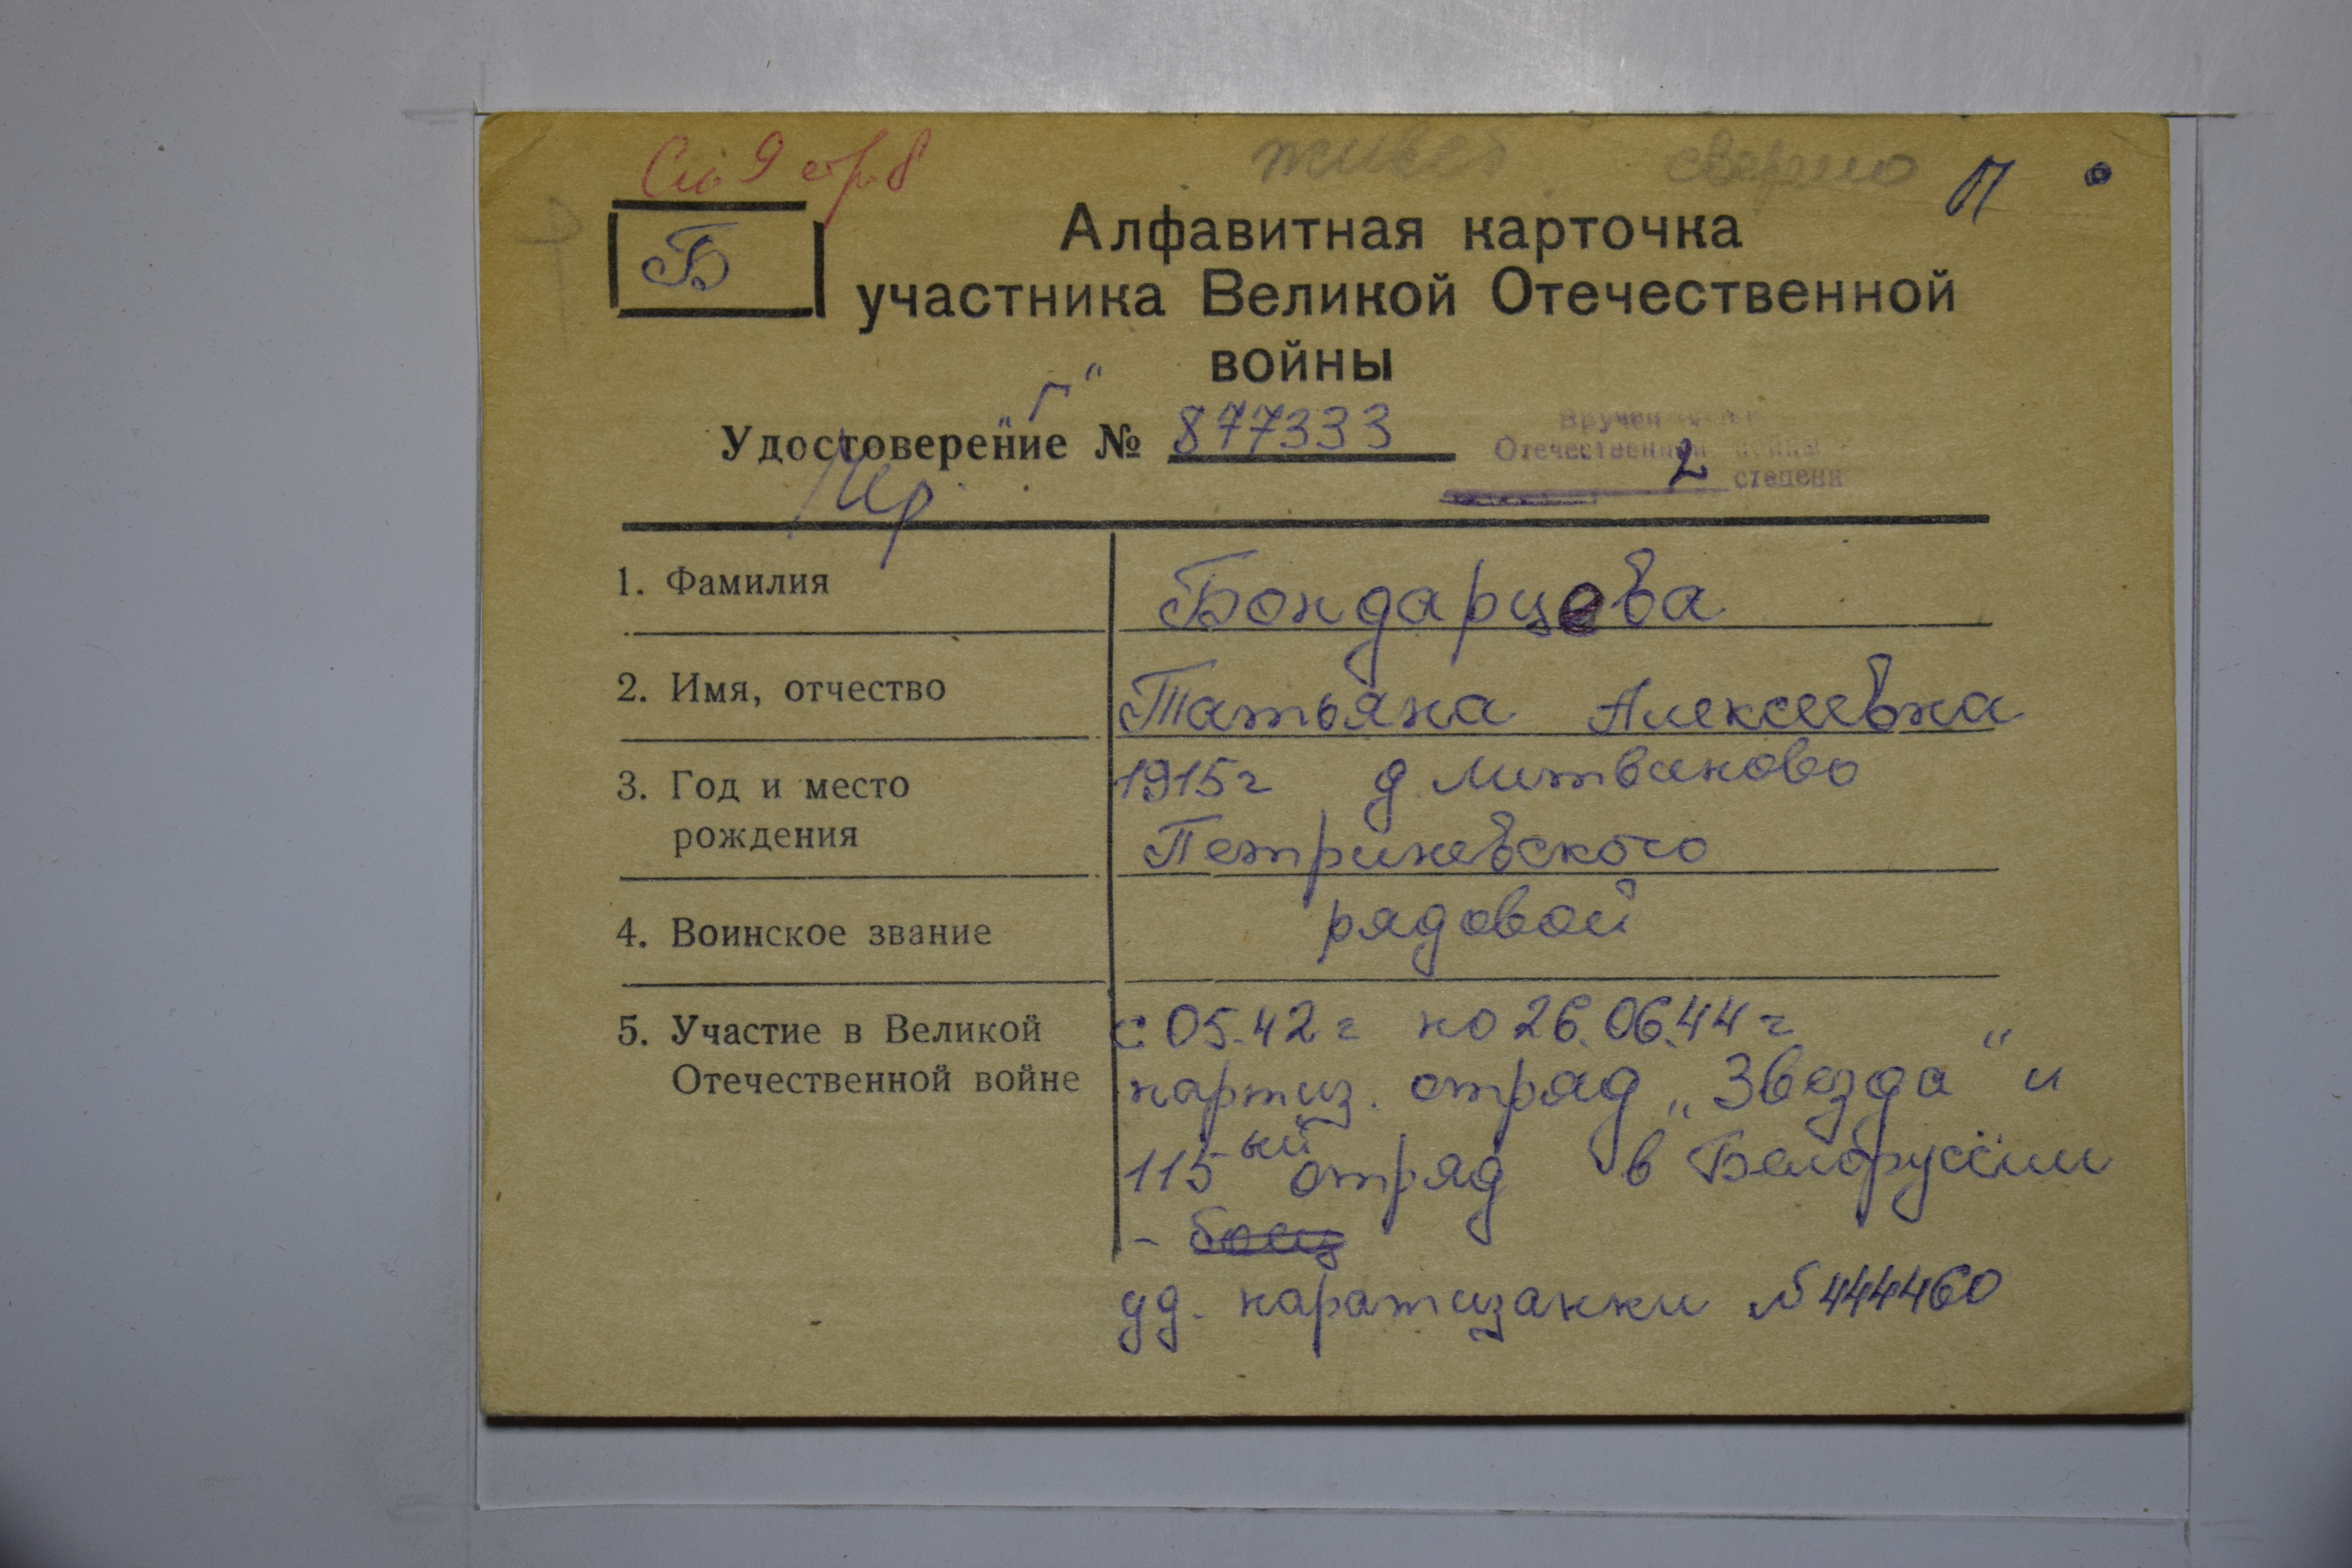 живет сверено П
Алфавитная карточка
Б
участника Великой Отечественной
войны
"Г"
Удостоверение № 877333
Вручен
Отечественной войны
2 степени
1. Фамилия Бондарцева
2. Имя, отчество Татьяна Алексеевна
3. Год и место 1915г д. Литваново
рождения Петриковского
4. Воинское звание рядовой
5. Участие в Великой с 05.42 г по 26.06.44 г
Отечественной войне партиз. отряд „Звезда" и
115ый отряд в Белоруссии
- боец
уд. паратизанки № 444460